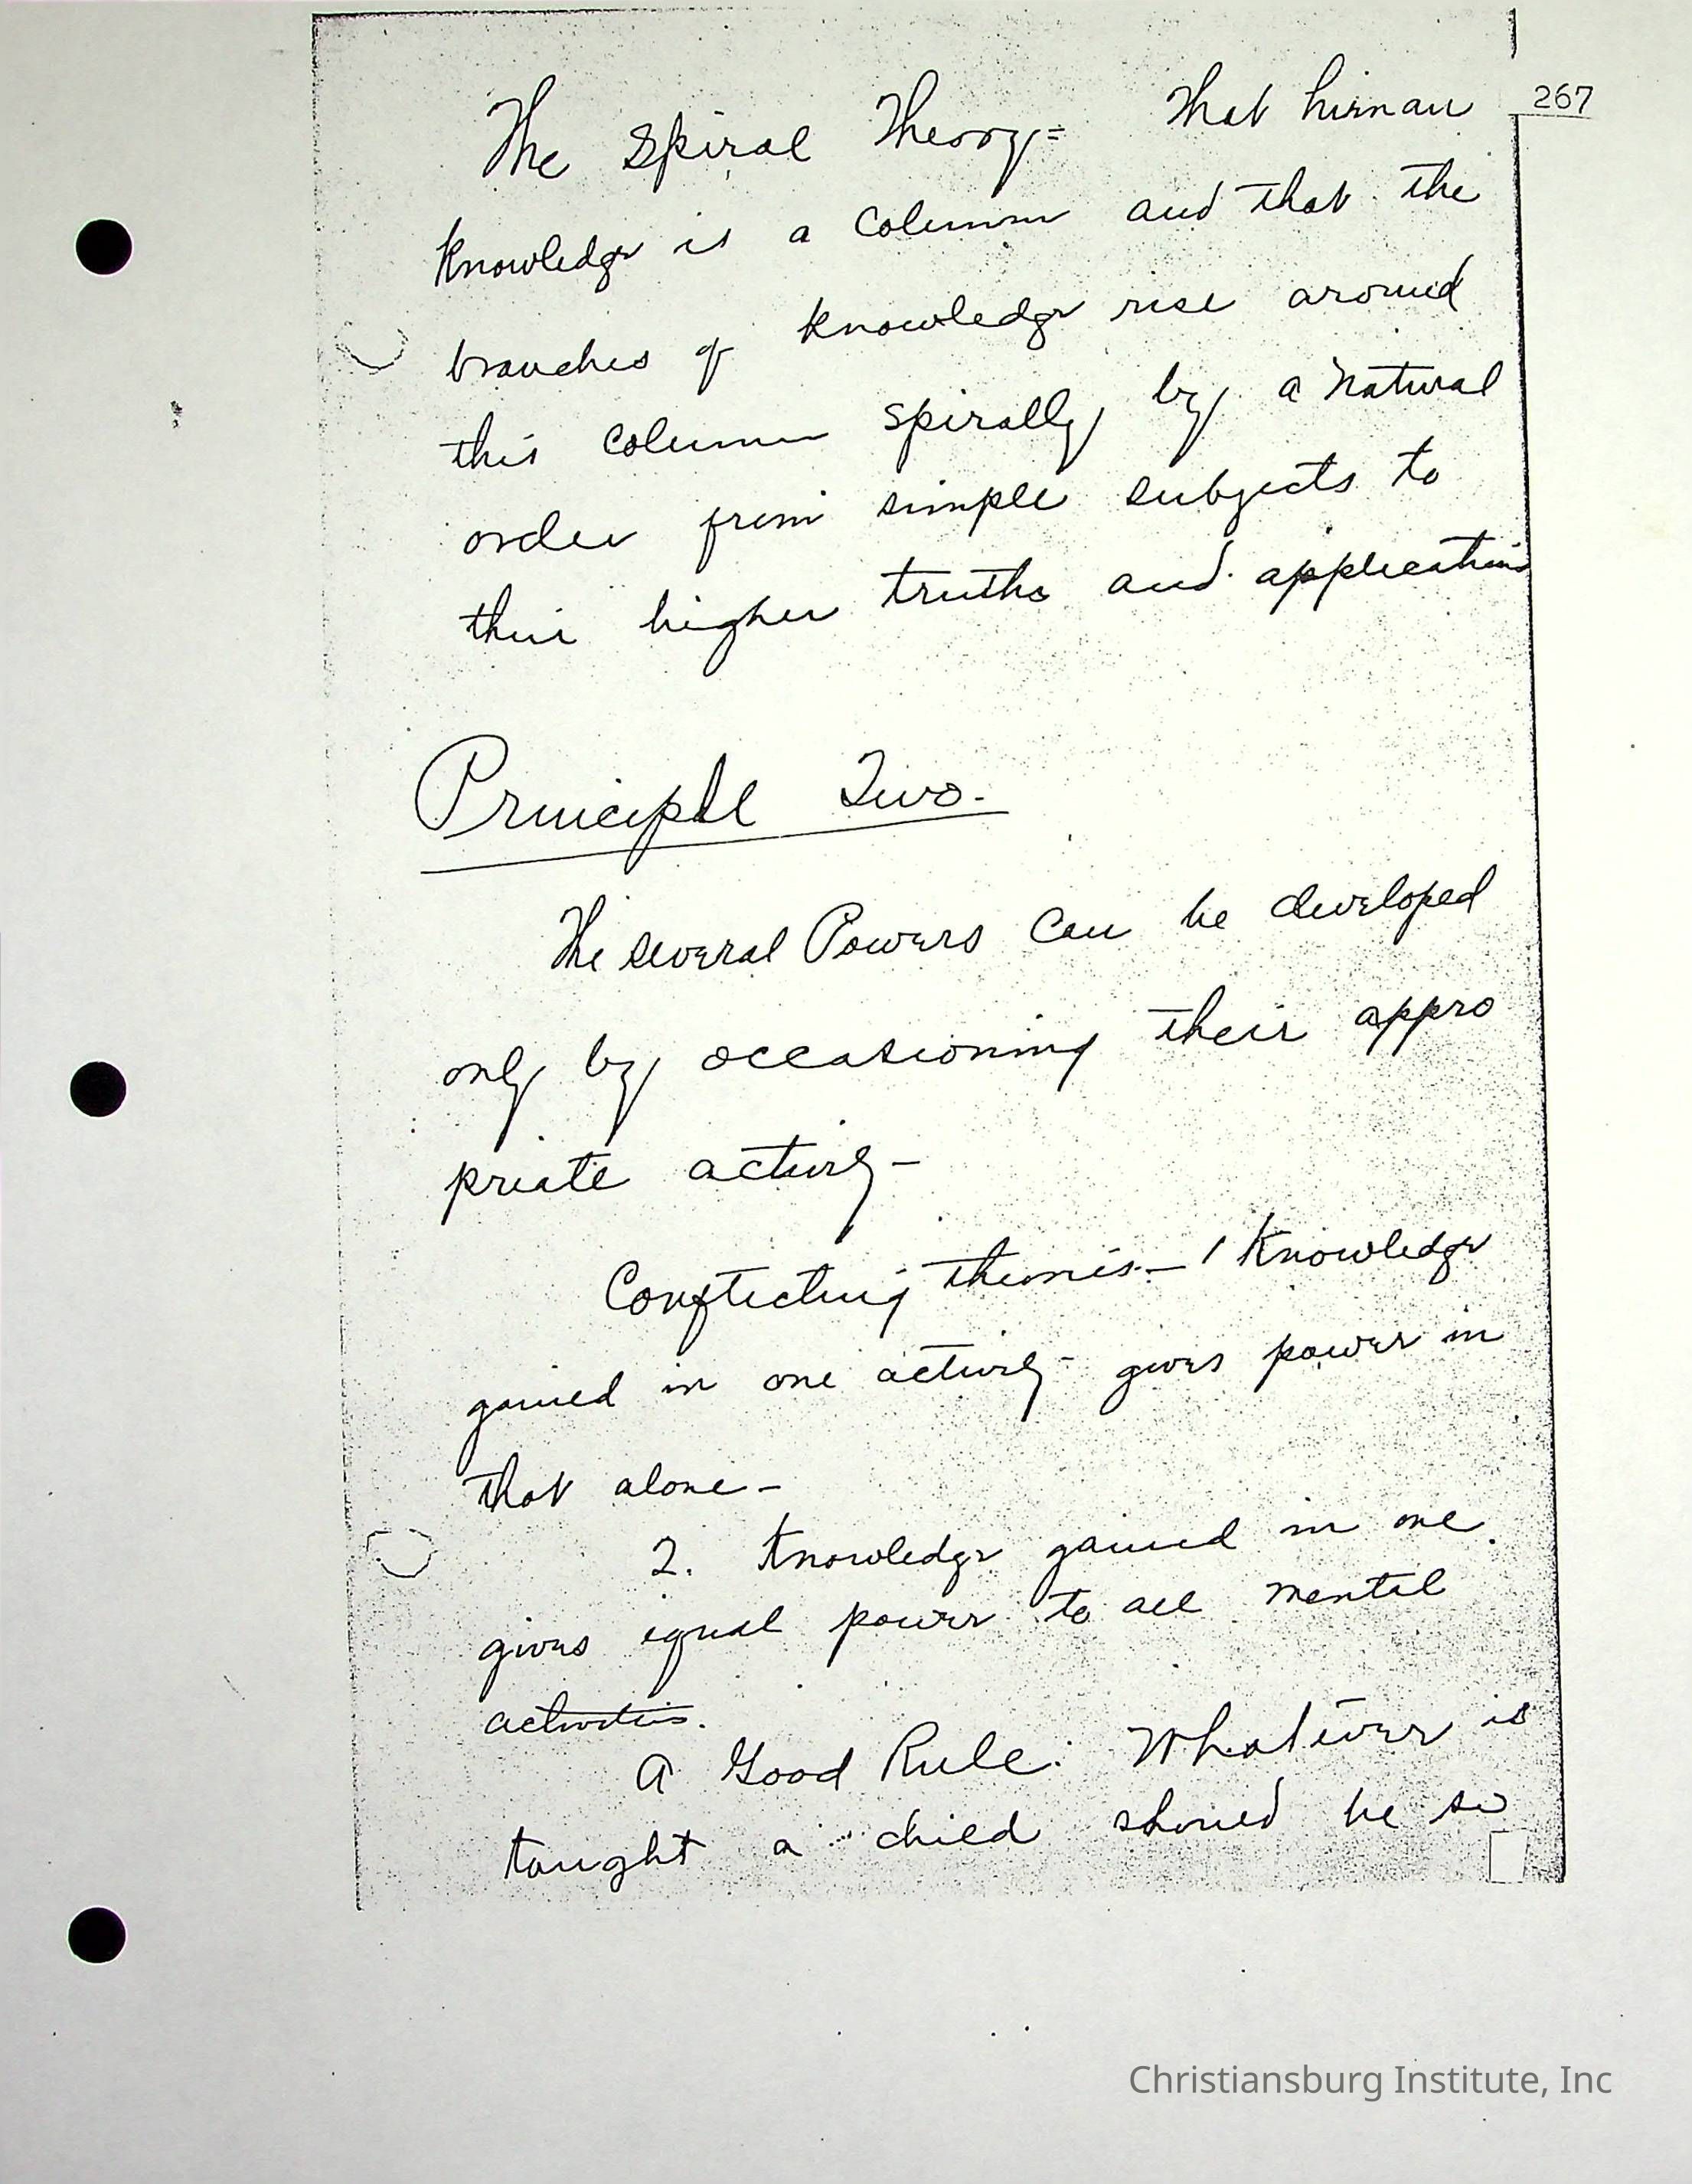 267
The Spiral Theory= That human
knowledge is a column and that the
branches of knowledge rise around
this column spirally by a natural
order from simple subjects to
their higher truths and applications
Principle Two.
The several Powers can be developed
only by occasioning their appro
priate activity-
Conflicting theories- 1 Knowledge
gained in one activity- gives power in
that alone-
2. Knowledge gained in one
gives equal power to all mental
activities.
A Good Rule: Whatever is
taught a child should be so
Christiansburg Institute, Inc